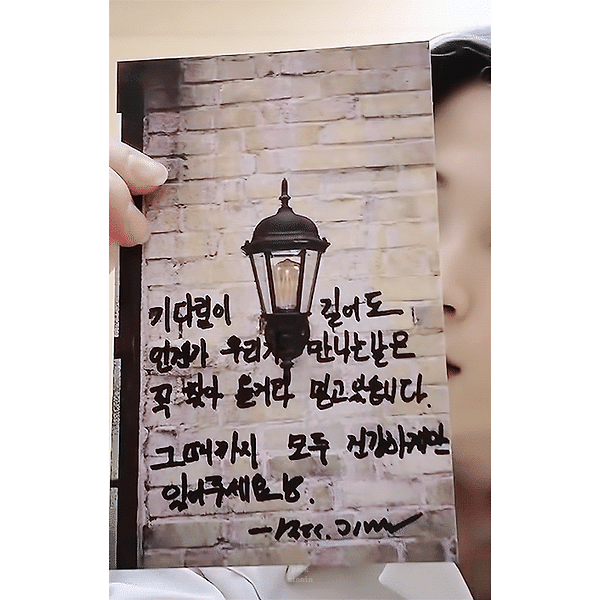 기다림이 길어도
언젠가 우리가 만나는날은
꼭 찾아 올거라 믿고있습니다.
그때까지 모두 건강하게만
있어주세요.